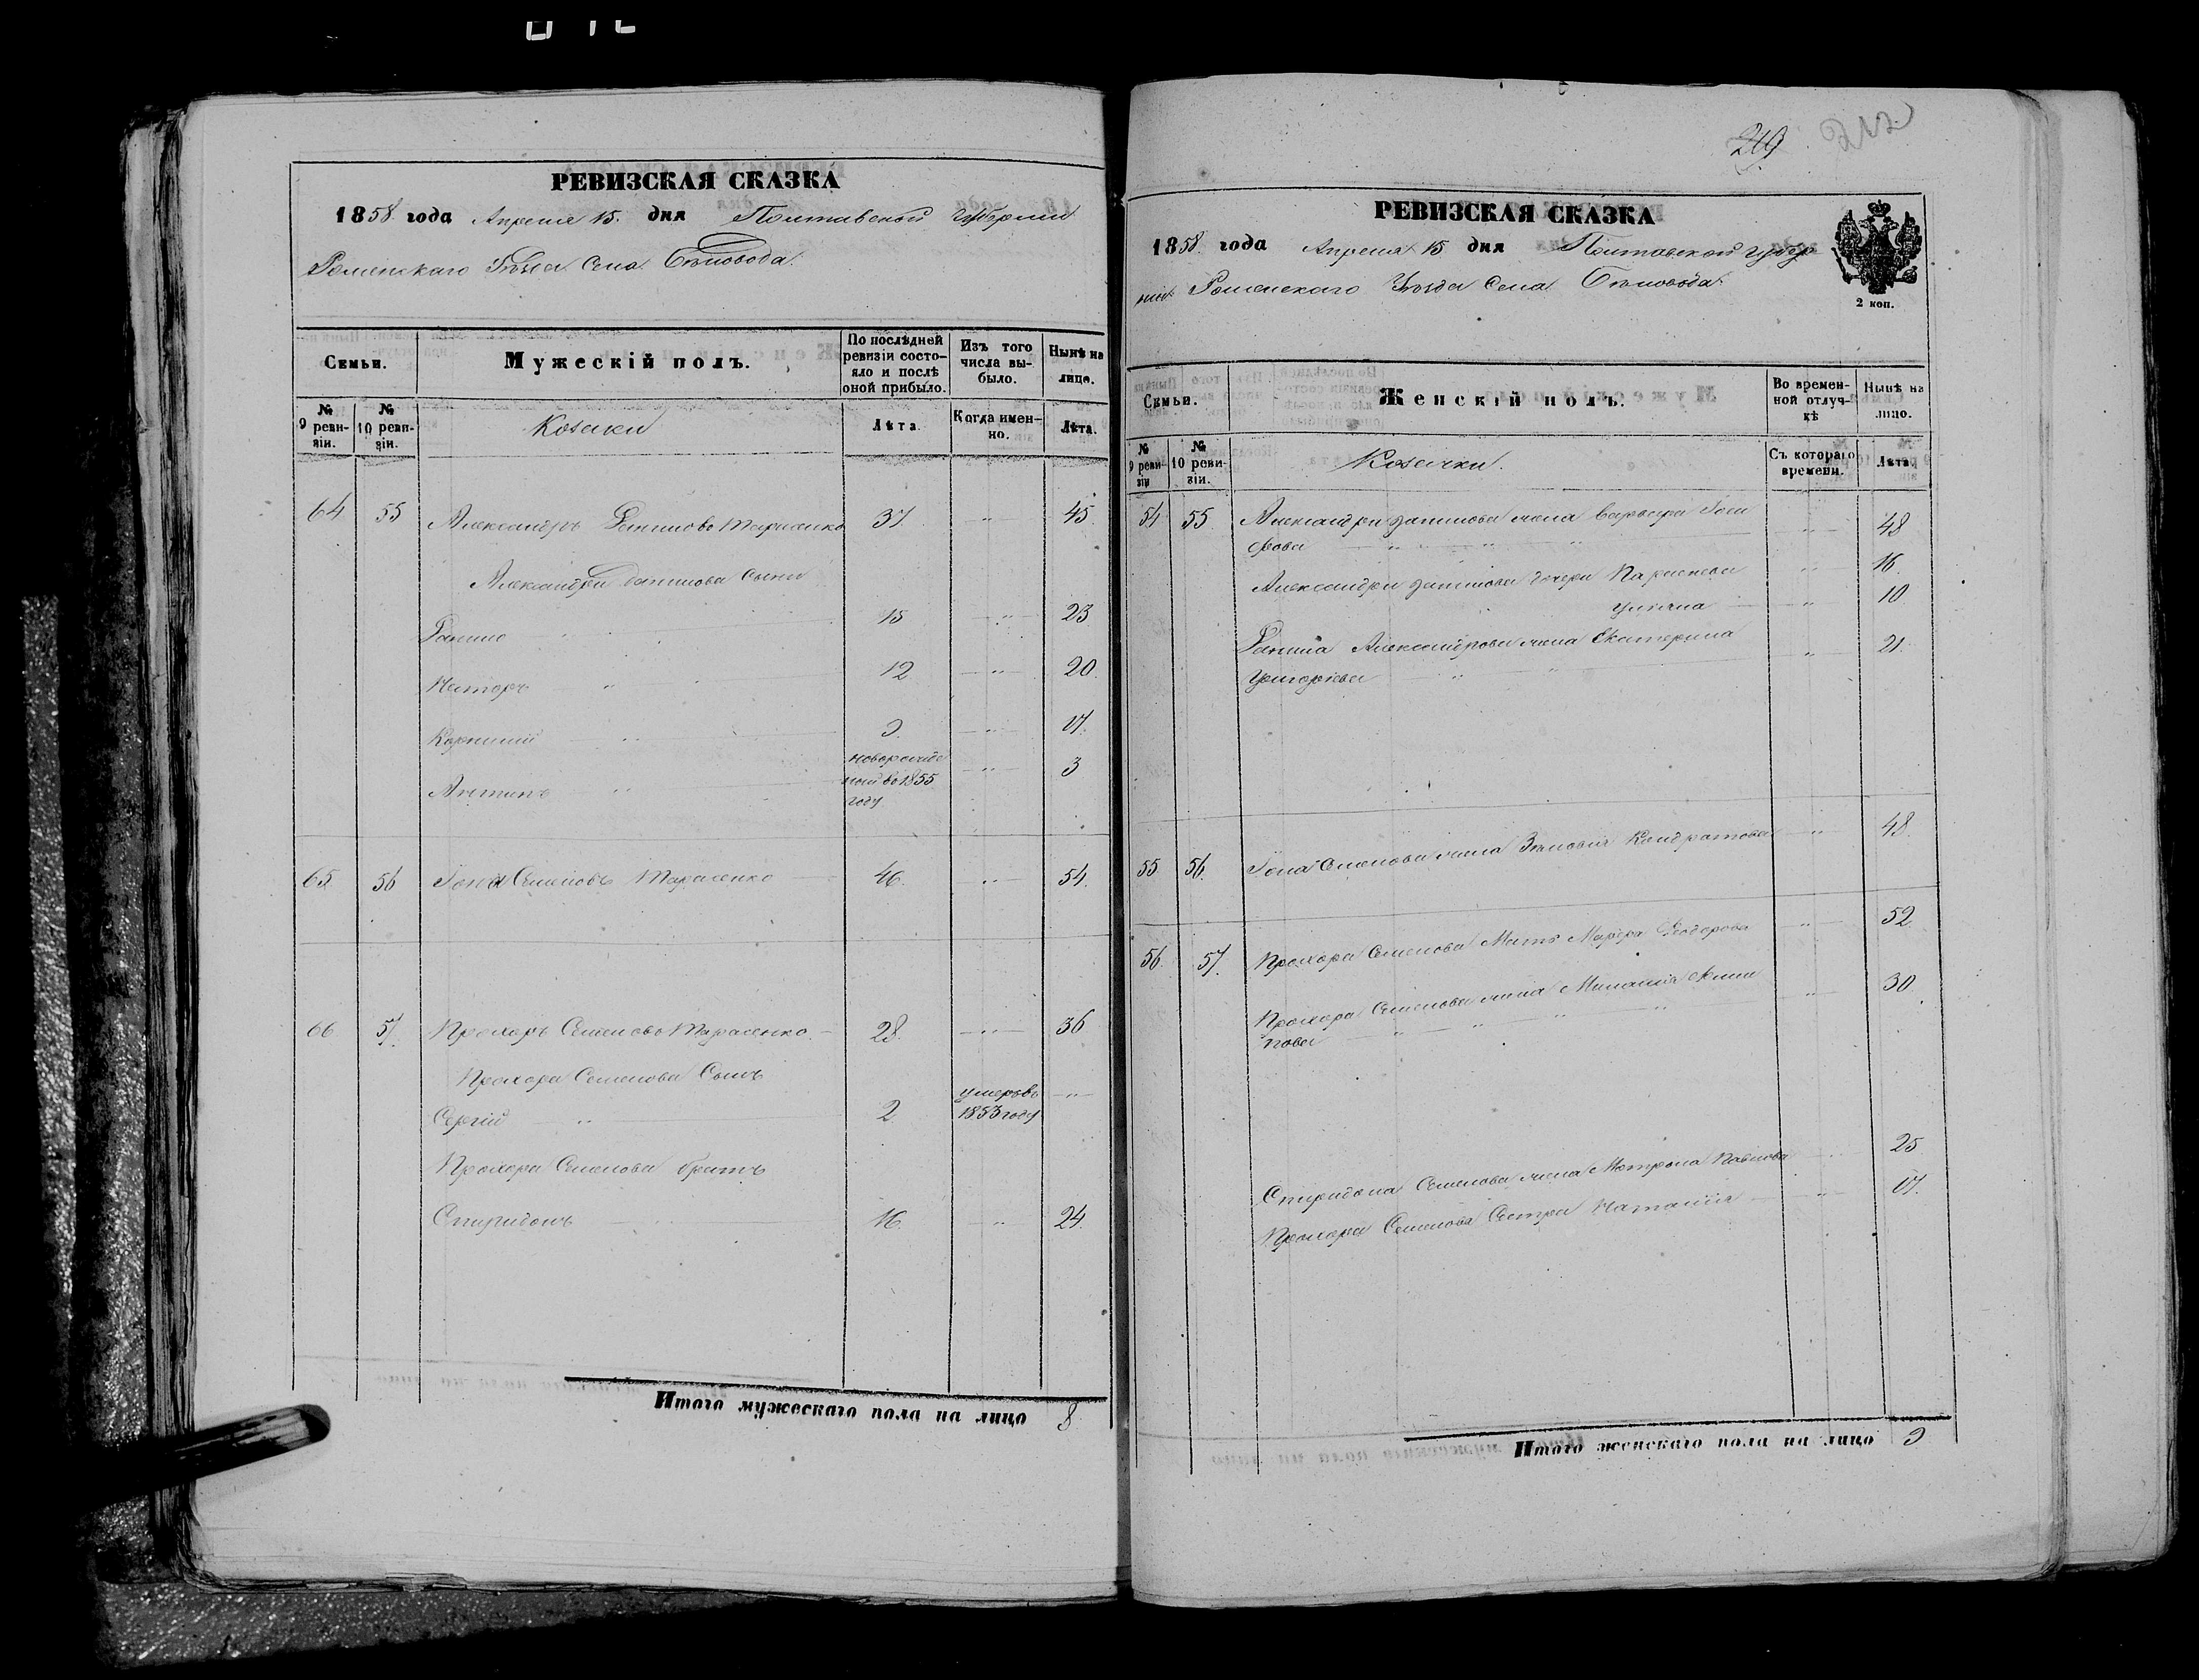 РЕВИЗСКАЯ СКАЗКА
1858 года Апреля 15. дня Полтавской Губернии
Роменскаго Уѣзда Села Бѣловода.
Семьи.
Мужескій полъ.
По послѣдней ревизіи состояло и послѣ оной прибыло.
Изъ того числа выбыло.
Нынѣ на лицо.
№ 9 ревизіи.
№ 10 ревизіи.
Козаки
Лѣта.
Когда именно.
Лѣта.
64 55 Александръ Даниловъ Тарасенко 37 " 45.
Александра Данилова Сыны
Данило " 15 " 23
Несторъ " 12 " 20.
Корнилий " 9. " 17.
новорожде
ный въ 1855
году
Антинъ " " 3
65 56 Іона Семеновъ Тарасенко 46. " 54.
66 57. Прохоръ Семеновъ Тарасенко. 28. " 36
Прохора Семенова Сынъ
Сергій " 2 умеръ въ 1853 году "
Прохора Семенова братъ
Спиридонъ " 16 " 24.
Итого мужескаго пола на лицо 8
219 212
РЕВИЗСКАЯ СКАЗКА
1858. года Апреля 15 дня Полтавской Губер
нии Роменскаго Уѣзда Села Бѣловода.
2 коп.
Семьи.
Женскій полъ.
Во временной отлучкѣ
Нынѣ на лицо.
№ 9 ревизіи
№ 10 ревизіи.
Козачки.
Съ котораго времени.
Лѣта.
54 55. Александра Данилова жена Варвара " 48
Александра Данилова дочери Параскева " 16.
Ульяна " 10
Данила Александрова жена Екатерина " 21.
Григорiева "
55 56. Іона Семенова жена Зѣновія Кондратова " 48.
56. 57. Прохора Семенова Мать Марфа Феодорова " 52.
Прохора Семенова жена Миланія Фили " 30
пова " " " "
Спиридона Семенова жена Мотрона Павлова " 25
Прохора Семенова Сестра Наталiя " 17.
Итого женскаго пола на лицо 9